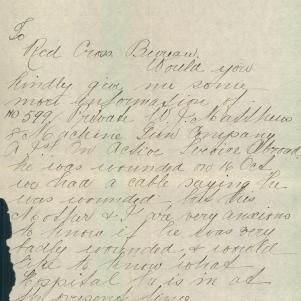 To
Red Cross Bureau.
Would you
kindly give me some
more information of
No 599. Private W. J. Matthews
Machine Gun Company
A.I.F. On Active Service Abroad
he was wounded on 16 Oct
we had a cable saying he
was wounded, but his
Mother & I are very anxious
to know if he was very
badly wounded & would
like to know what
Hospital he is in at
the present time